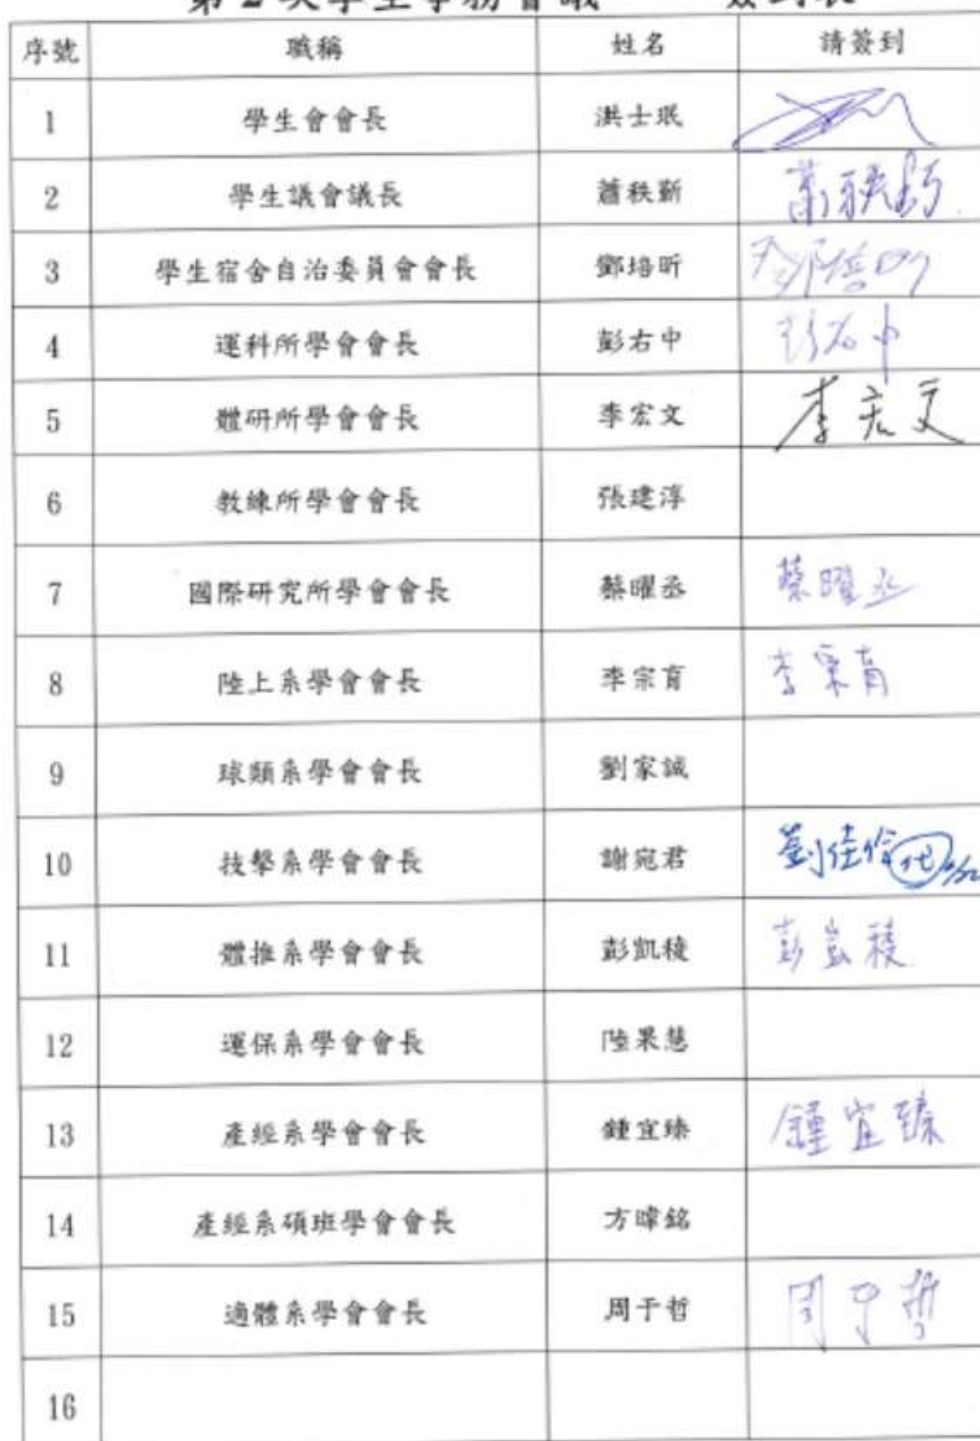 第2次學生事務會議 簽到表
序號 職稱 姓名 請簽到
1 學生會會長 洪士珉
2 學生議會議長 蕭秩新 蕭秩新
3 學生宿舍自治委員會會長 鄧培昕 鄧培昕
4 運科所學會會長 彭右中 彭右中
5 體研所學會會長 李宏文 李宏文
6 教練所學會會長 張建淳
7 國際研究所學會會長 蔡曜丞 蔡曜丞
8 陸上系學會會長 李宗育 李宗育
9 球類系學會會長 劉家誠
10 技擊系學會會長 謝宛君 劉佳伶代
11 體推系學會會長 彭凱稜 彭凱稜
12 運保系學會會長 陸果慧
13 產經系學會會長 鍾宜臻 鍾宜臻
14 產經系碩班學會會長 方暐銘
15 適體系學會會長 周于哲 周于哲
16